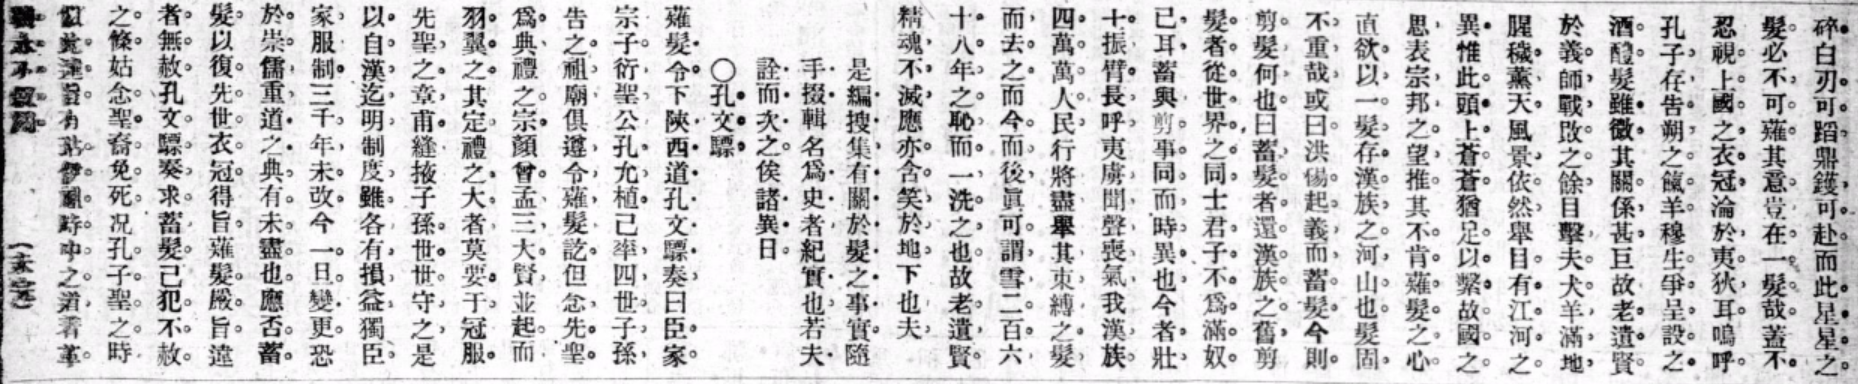 碎。白刃可蹈。鼎鑊可赴。而此星星之
髮。必不可薙。其意豈在一髮哉。蓋不
忍視上國之衣冠。淪於夷狄耳。嗚呼。
孔子存告朔之餼羊。穆生爭呈設之
酒醴。髮雖微。其關係甚巨。故老遺賢。
於義師戰敗之餘。目擊夫犬羊滿地。
腥穢薰天。風景依然。舉目有江河之
異。惟此頭上蒼蒼。猶足以繫故國之
思。表宗邦之望。推其不肯薙髮之心。
直欲以一髮存漢族之河山也。髮固
不重哉。或曰。洪楊起義而蓄髮。今則
剪髮何也。曰。蓄髮者。還漢族之舊。剪
髮者。從世界之同。士君子不爲滿奴
已耳。蓄與剪。事同而時異也。今者壯
士振臂長呼。夷虜聞聲喪氣。我漢族
四萬萬人民。行將盡舉其束縛之髮
而去之。而今而後。眞可謂雪二百六
十八年之恥。而一洗之也。故老遺賢。
精魂不滅。應亦含笑於地下也夫。
是編搜集有關於髮之事實。隨
手掇輯。名爲史者。紀實也。若夫
詮而次之。俟諸異日。
〇孔文驃
薙髮令下。陝西道孔文驃奏曰。臣家
宗子衍聖公孔允植。已率四世子孫。
告之祖廟。俱遵令薙髮訖。但念先聖
爲典禮之宗。顏曾孟三大賢並起。而
羽翼之。其定禮之大者。莫要于冠服。
先聖之章甫縫掖。子孫世世守之。是
以自漢迄明。制度雖各有損益。獨臣
家服制。三千年未改。今一旦變更。恐
於崇儒重道之典。有未盡也。應否蓄
髮。以復先世衣冠。得旨。薙髮嚴旨。違
者無赦。孔文驃奏求蓄髮。已犯不赦
之條。姑念聖裔免死。况孔子聖之時。